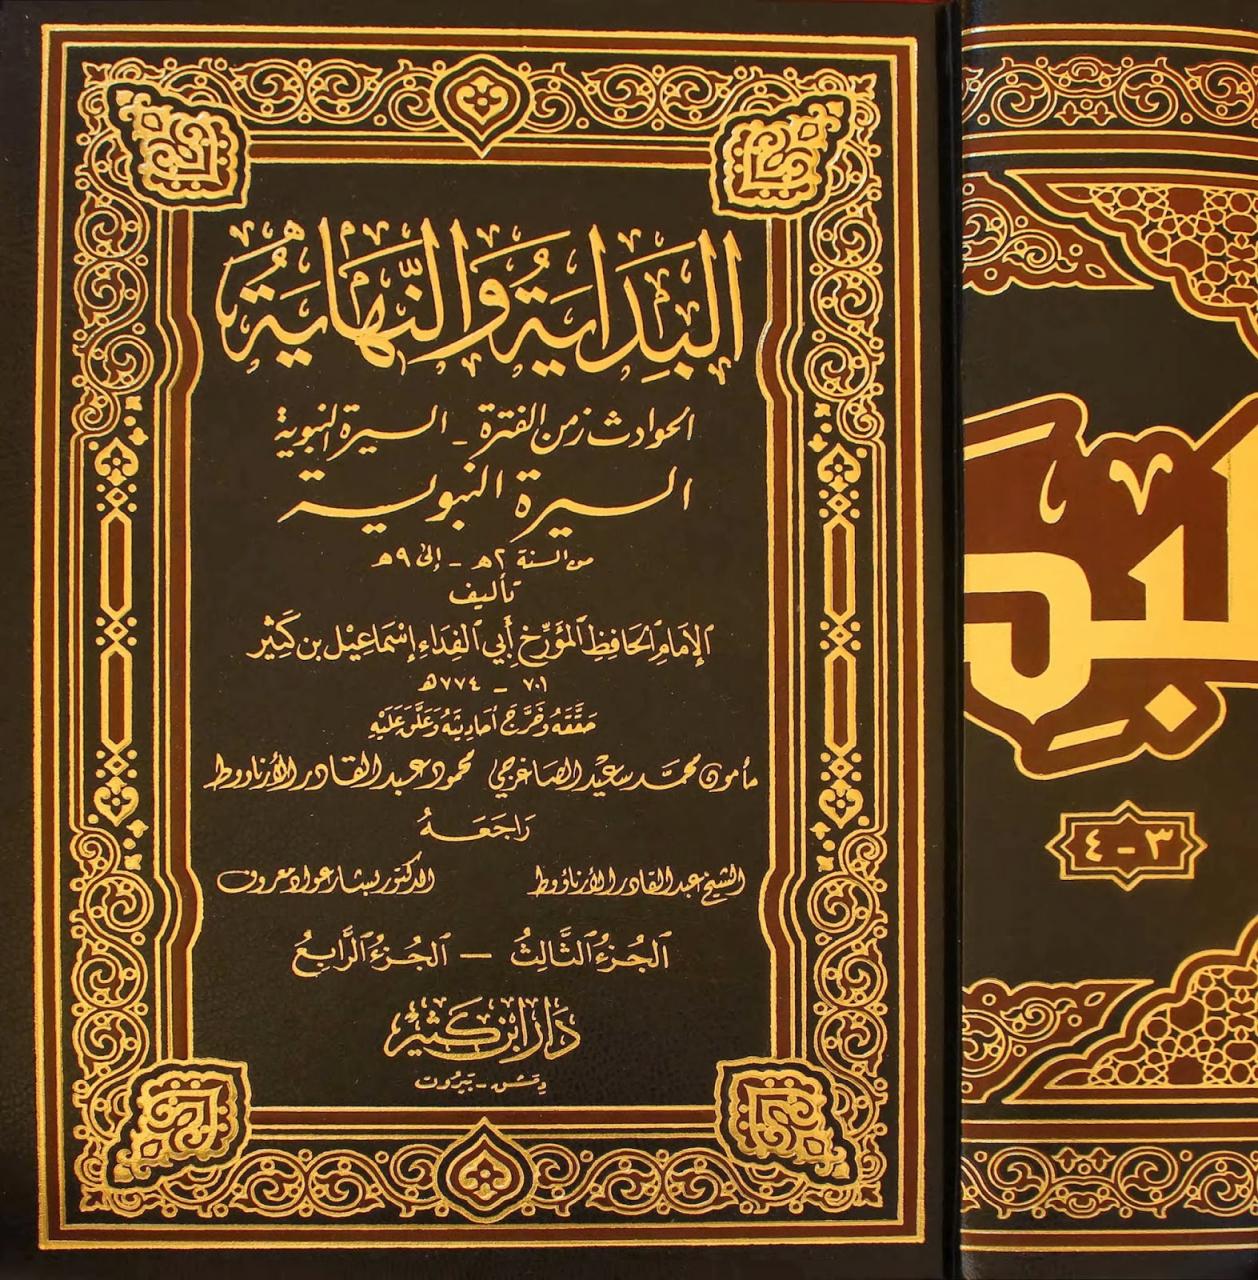 البداية والنهاية
الحوادث زمن الفترة - السيرة النبوية
السيرة النبوية
من السنة ٢هـ - إلى ٩هـ
تأليف
الإمام الحافظ المؤرخ أبي الفداء إسماعيل بن كثير
٧٠١ - ٧٧٤هـ
حققه وخرج أحاديثه وعلق عليه
مأمون محمد سعيد الصاغرجي محمود عبد القادر الأرناووط
راجعه
الشيخ عبد القادر الأرناؤوط الدكتور بشار عواد معروف
الجزء الثالث - الجزء الرابع
دار ابن كثير
دمشق - بيروت
٣ - ٤